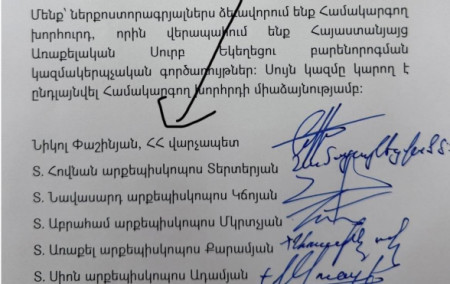 Մենք՝ ներքոստորագրյալներս ձևավորում ենք Համակարգող
խորհուրդ, որին վերապահում ենք Հայաստանյայց
Առաքելական Սուրբ Եկեղեցու բարենորոգման
կազմակերպչական գործառույթներ: Սույն կազմը կարող է
ընդլայնվել Համակարգող խորհրդի միաձայնությամբ:
Նիկոլ Փաշինյան, ՀՀ վարչապետ
Տ. Հովնան արքեպիսկոպոս Տերտերյան
Տ. Նավասարդ արքեպիսկոպոս Կճոյան
Տ. Աբրահամ արքեպիսկոպոս Մկրտչյան
Տ. Առաքել արքեպիսկոպոս Քարամյան
Տ. Սիոն արքեպիսկոպոս Ադամյան